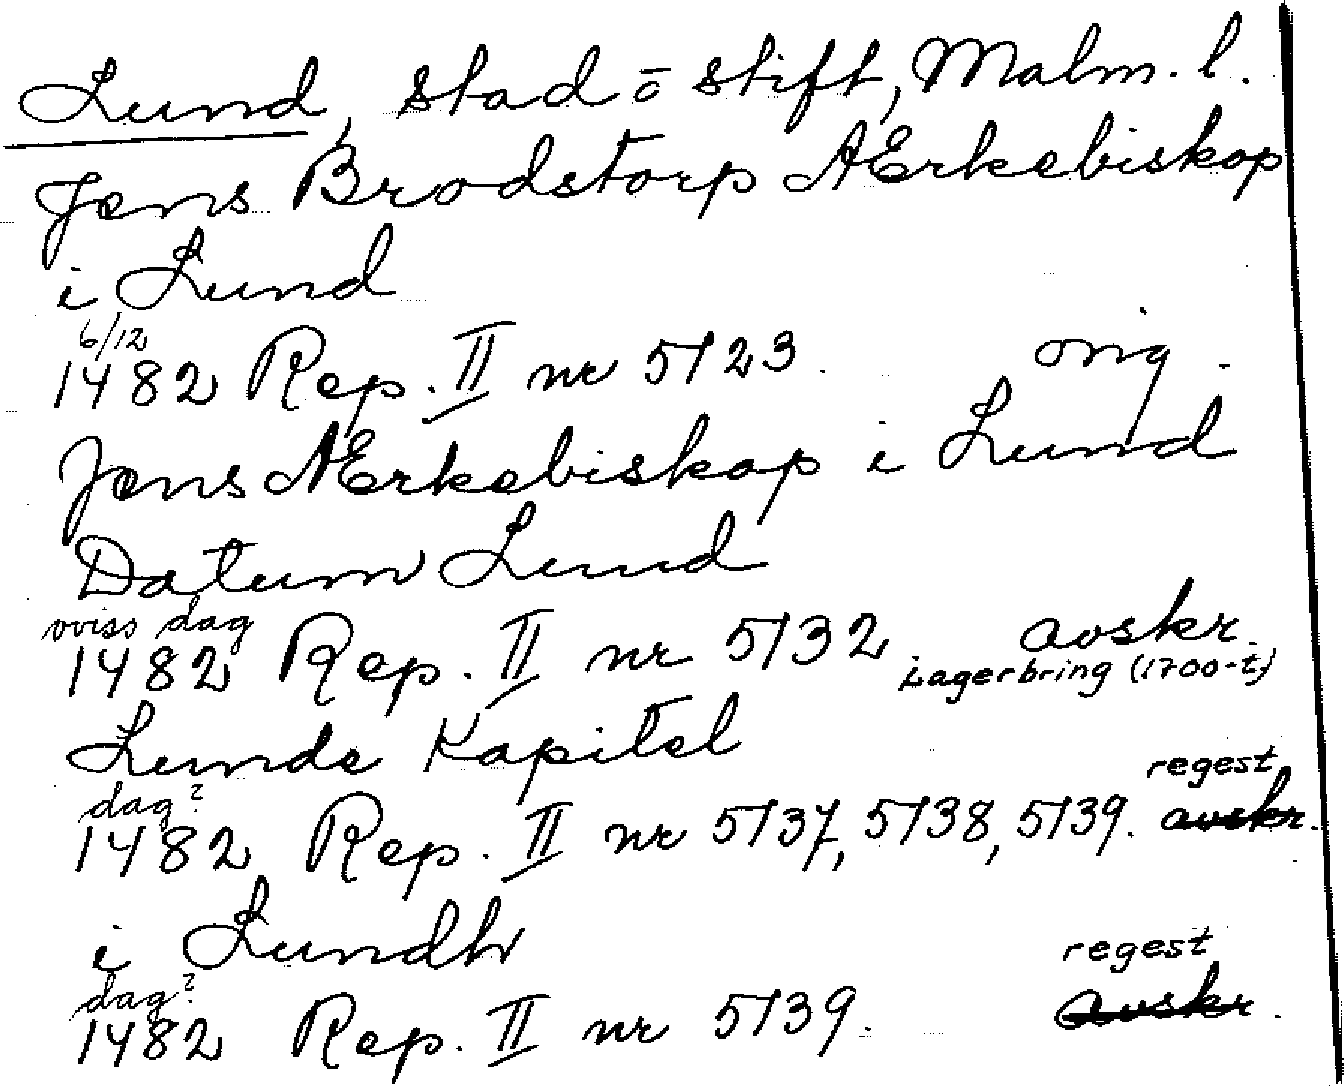 Lund, stad o stift, Malm. l.
Jens Brodstorp AErkebiskop
i Lund
6/12
1482 Rep. II nr 5123. orig.
Jens AErkebiskop i Lund
Datum Lund
oviss dag
1482 Rep. II nr 5132. avskr.
Lagerbring (1700-t)
Lunde Kapitel
regest
dag?
1482 Rep. II nr 5137, 5138, 5139. avskr.
i Lundh
regest
dag?
1482 Rep. II nr 5139. avskr.